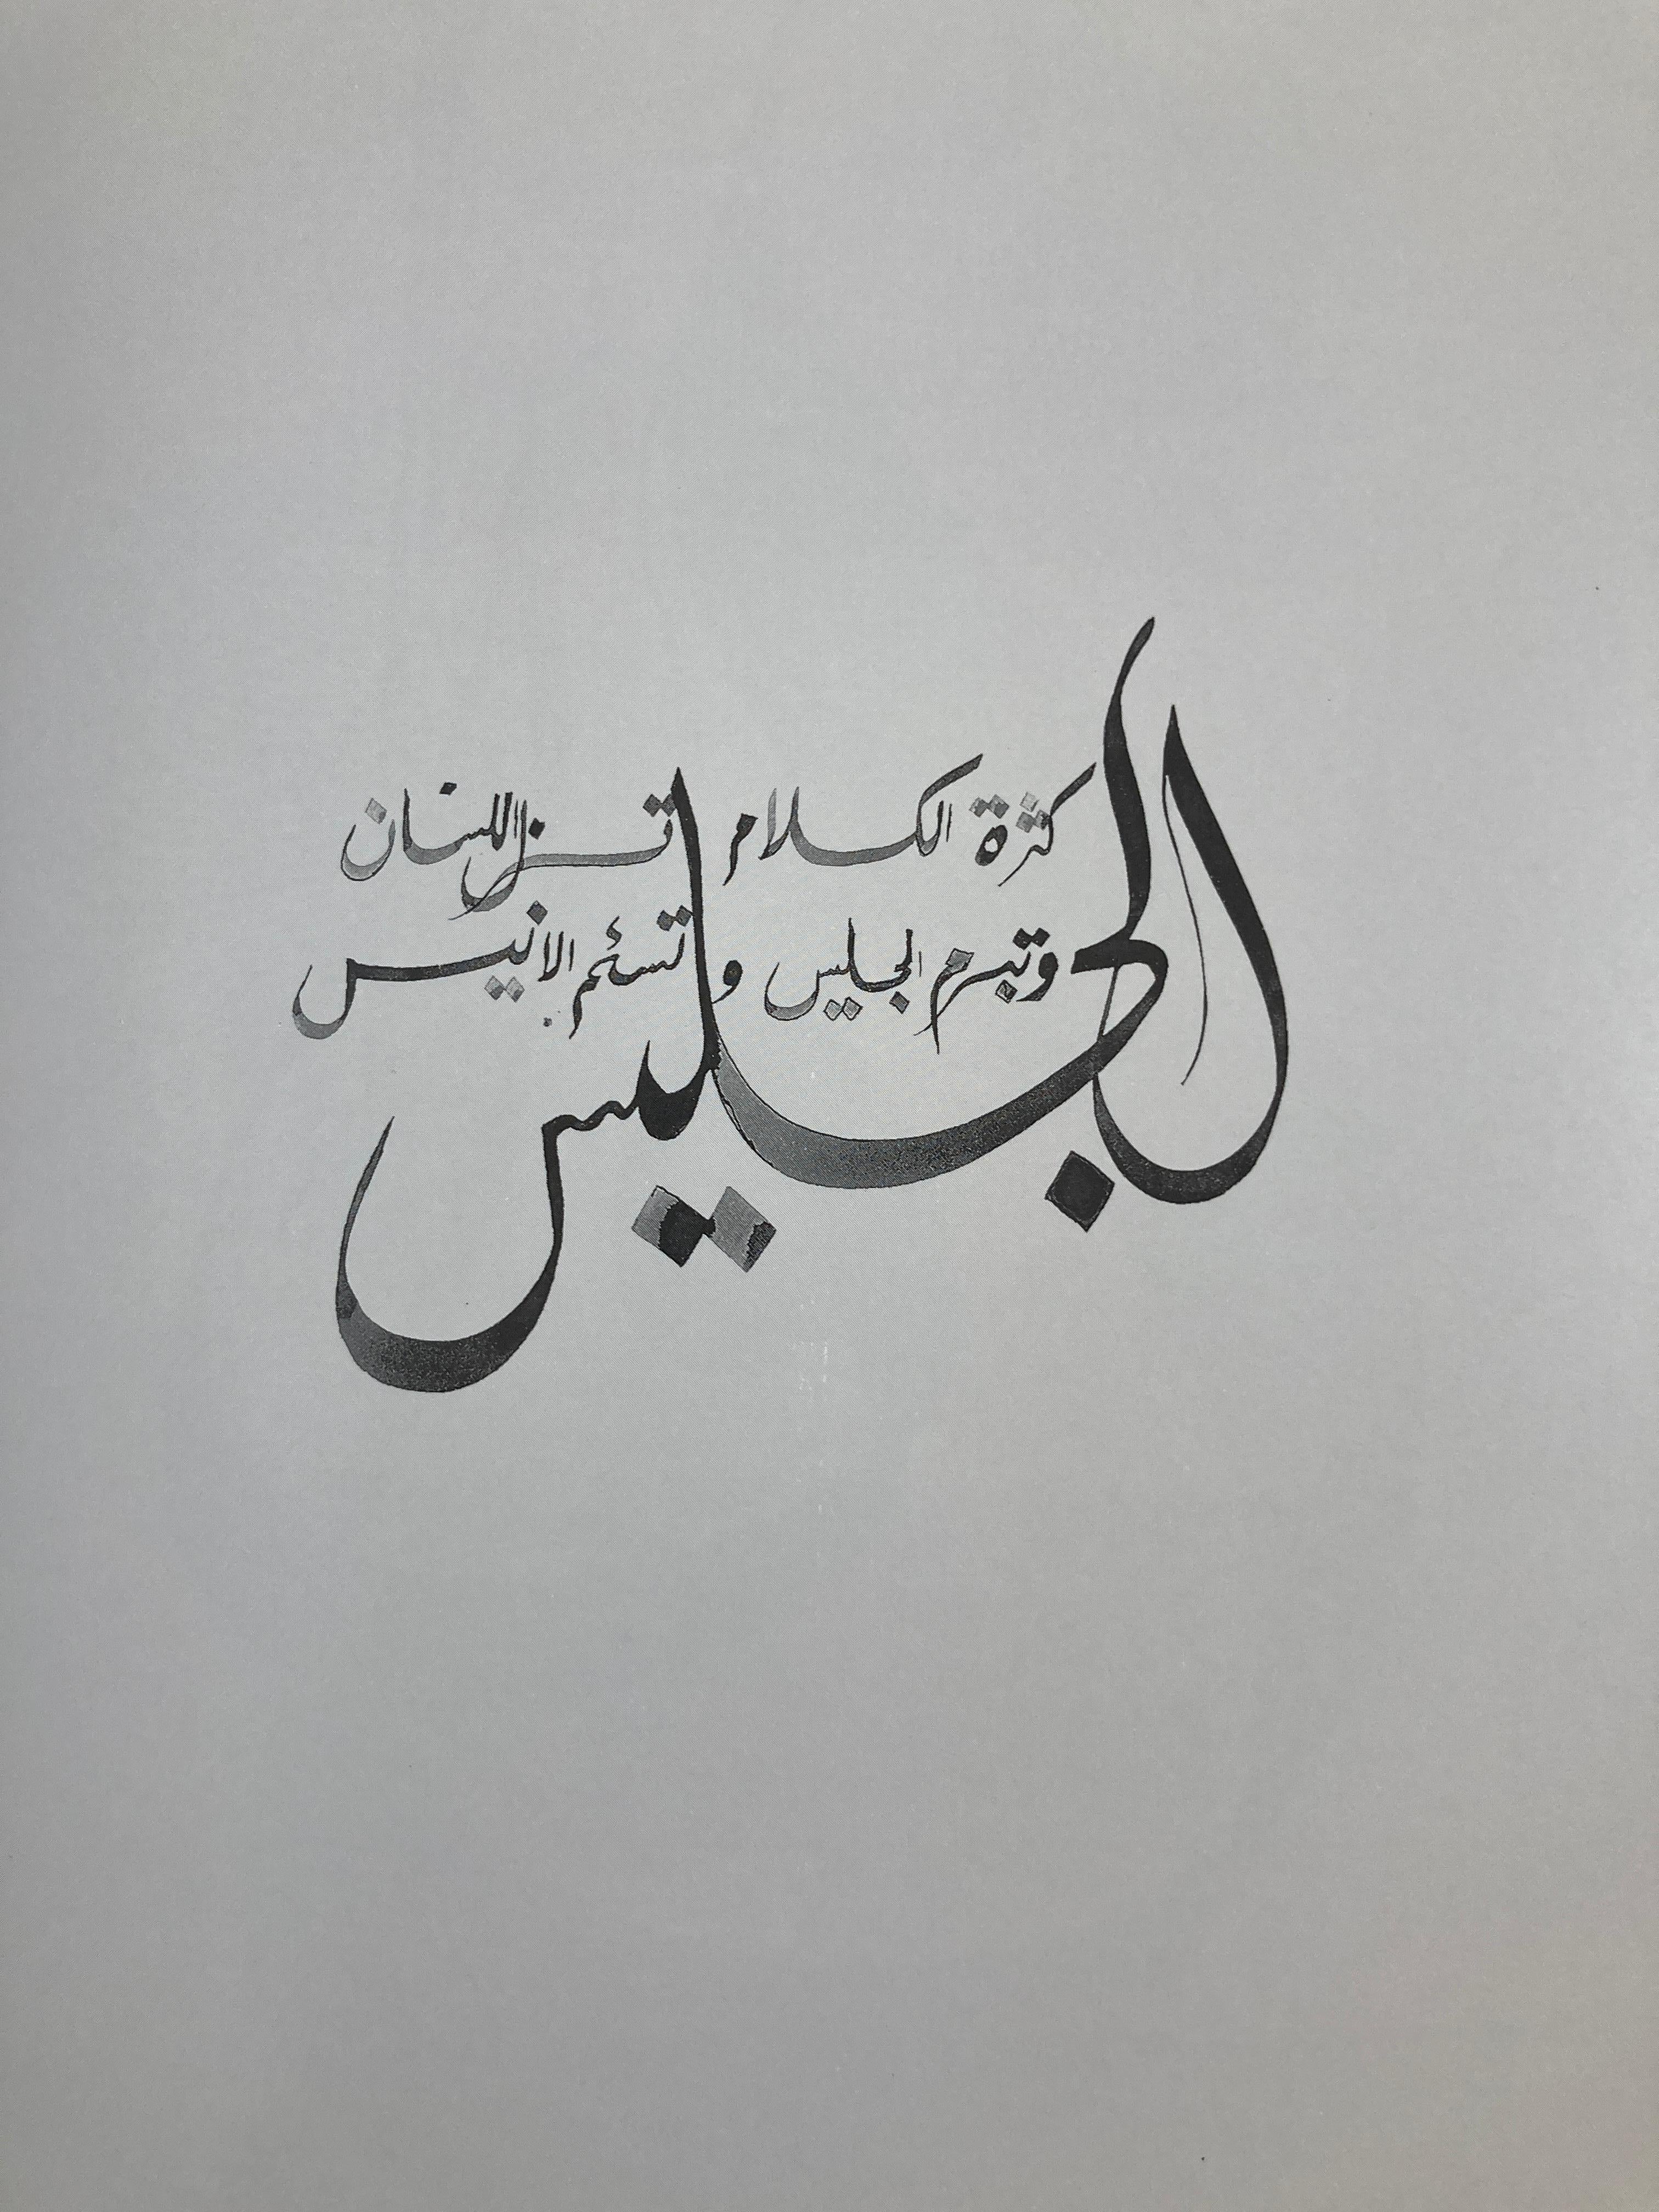 كثرة الكلام تزل اللسان
وتبرم الجليس وتسئم الانيس
الجليس